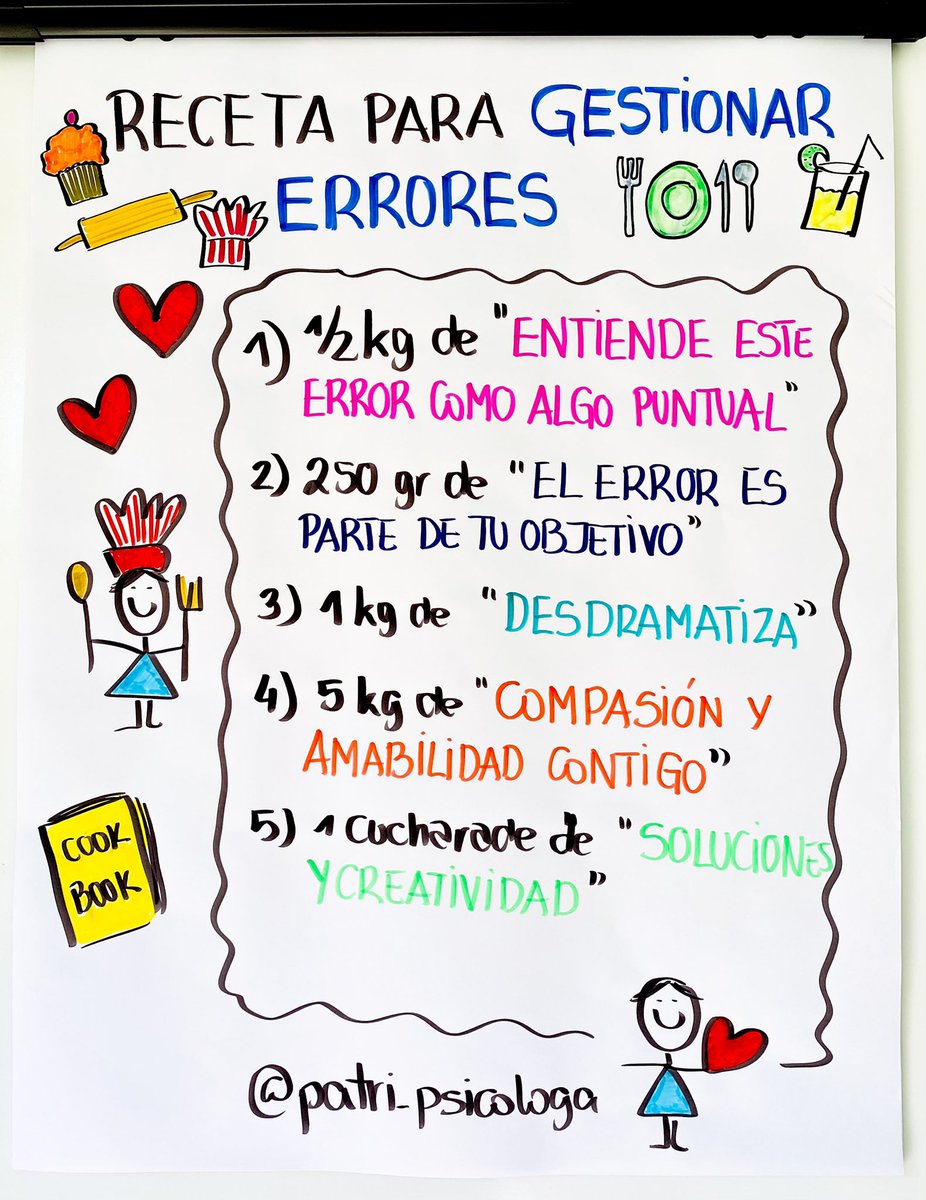 RECETA PARA GESTIONAR
ERRORES
1) 1/2 kg de "ENTIENDE ESTE
ERROR COMO ALGO PUNTUAL"
2) 250 gr de "EL ERROR ES
PARTE DE TU OBJETIVO"
3) 1 kg de "DESDRAMATIZA"
4) 5 kg de "COMPASIÓN Y
AMABILIDAD CONTIGO"
5) 1 cucharade de "SOLUCIONES
Y CREATIVIDAD"
COOK
BOOK
@patri_psicologa